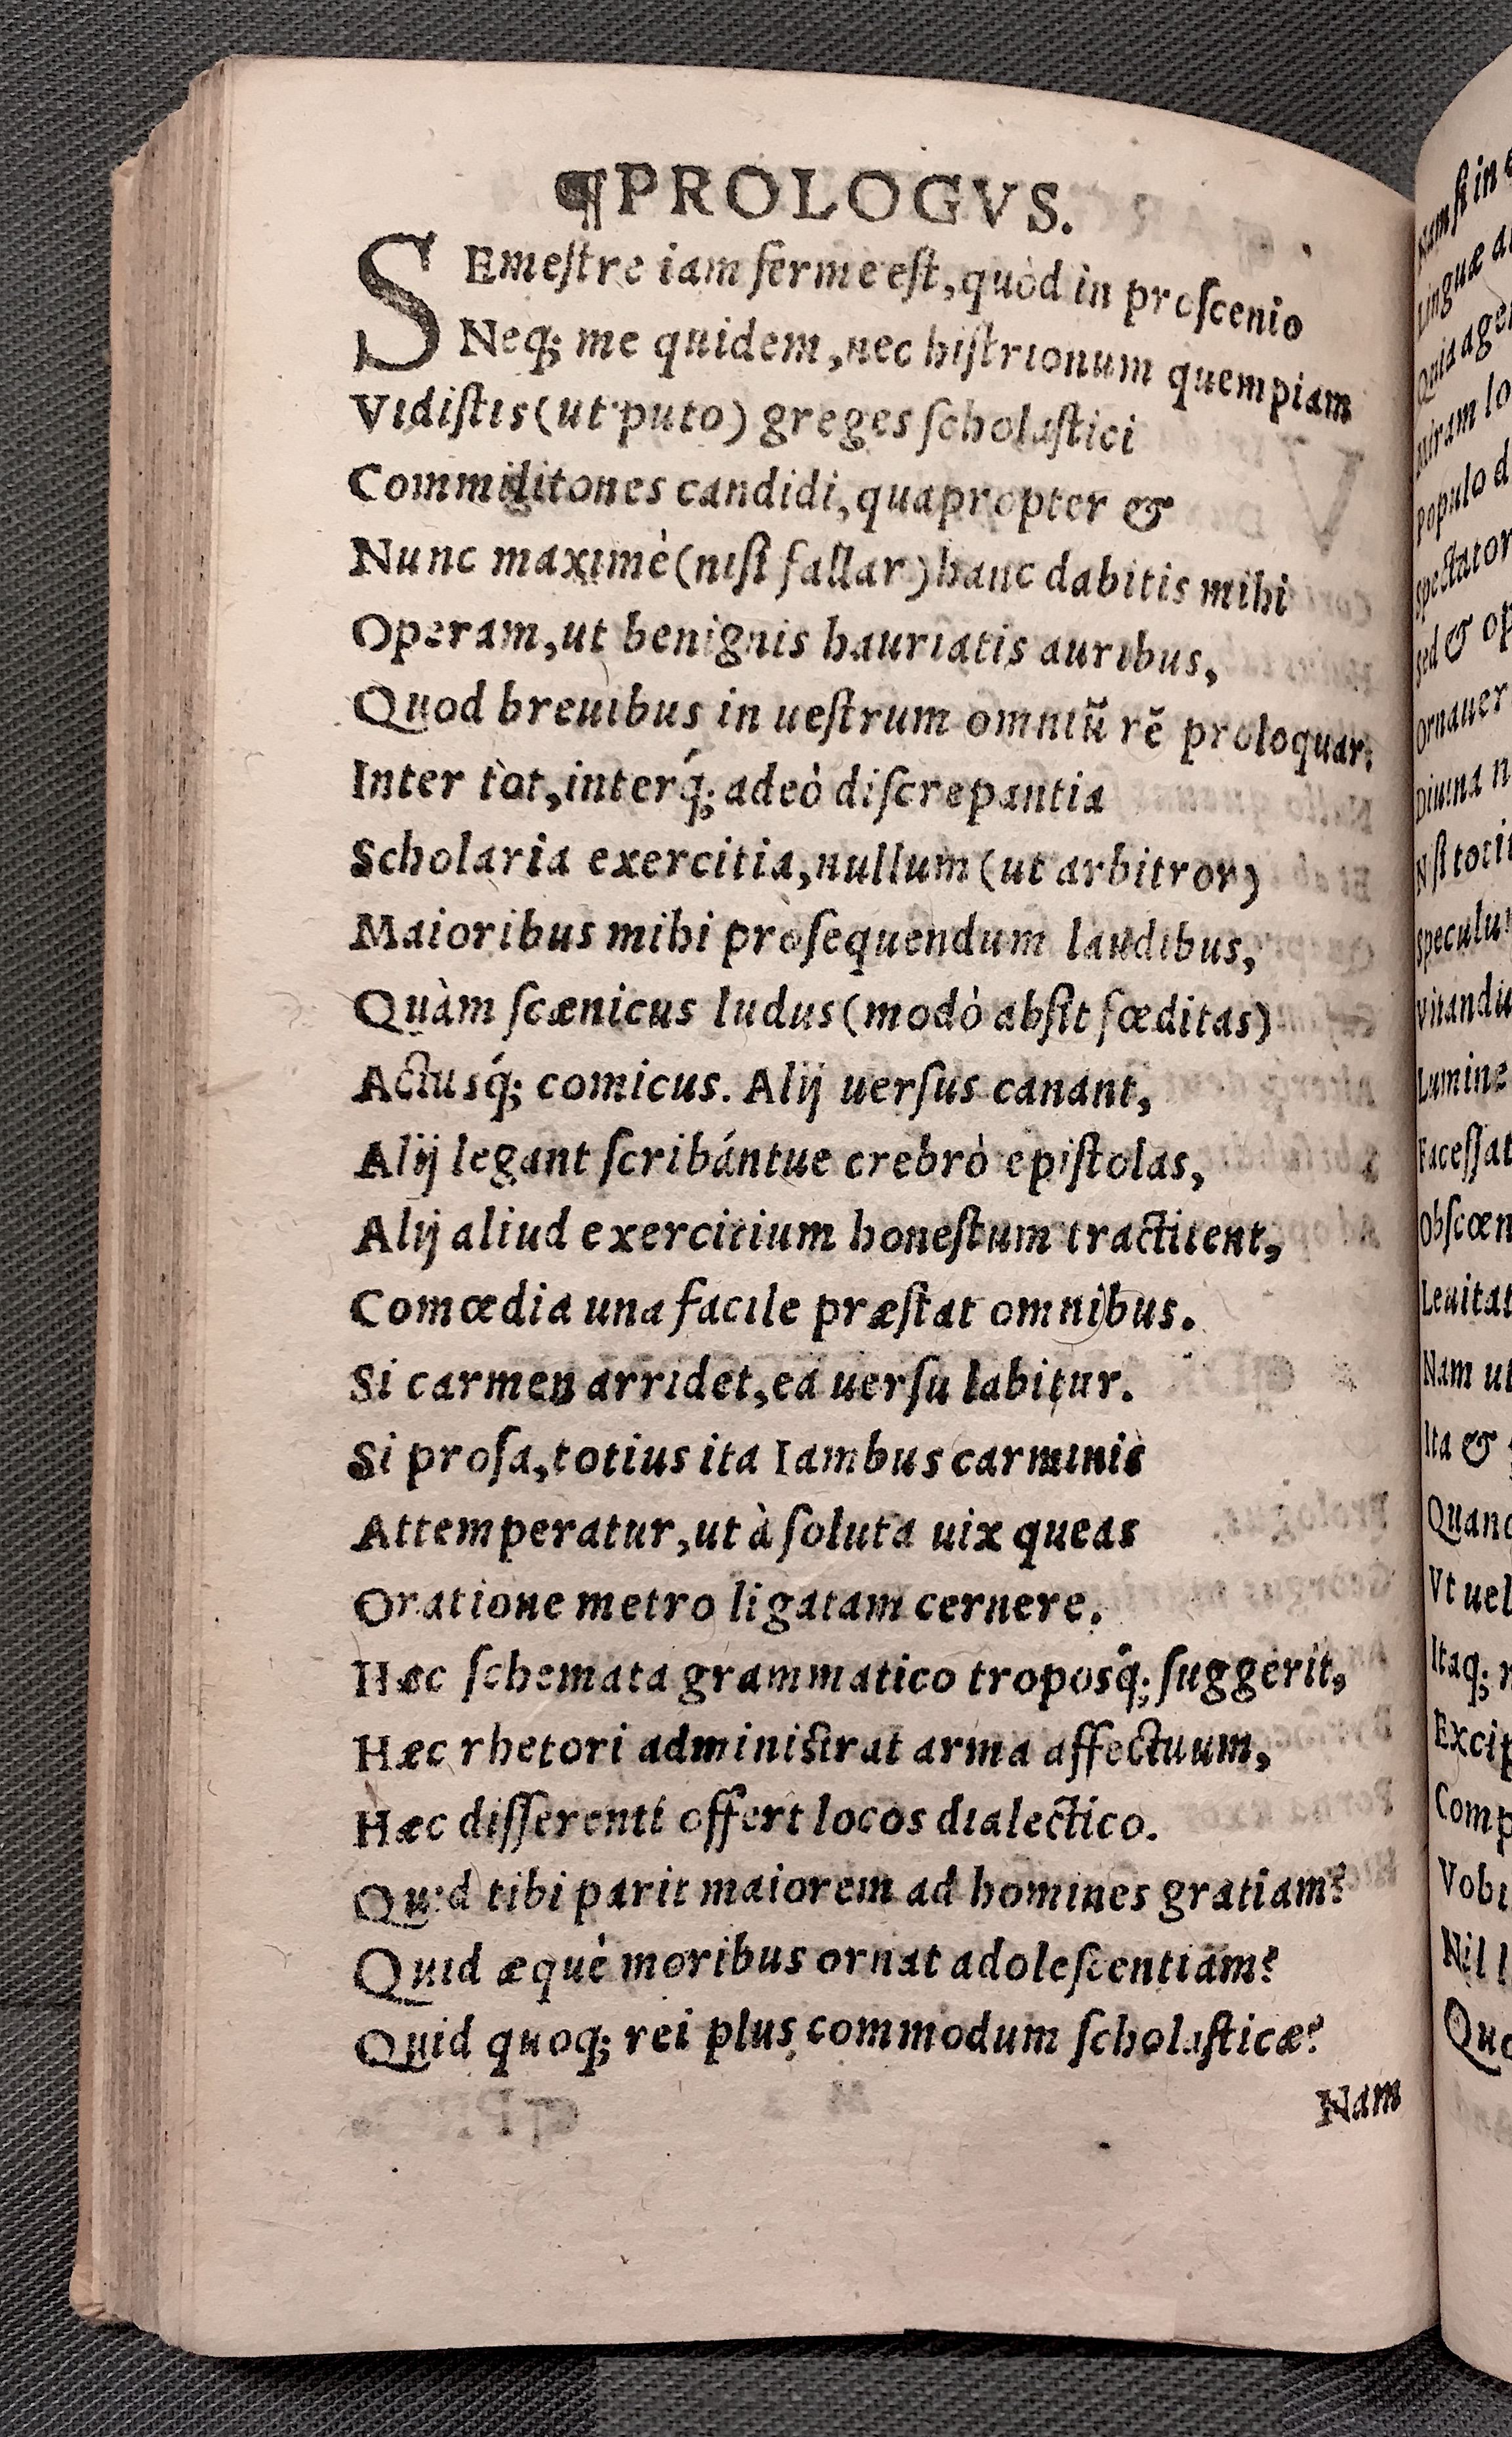 ¶PROLOGVS.
SEmeſtre iam ferme eſt, quòd in proſcenio
Neq; me quidem, nec hiſtrionum quempiam
Vidiſtis (ut puto) greges ſcholaſtici
Commilitones candidi, quapropter &
Nunc maximè (niſi fallar) hanc dabitis mihi
Operam, ut benignis hauriatis auribus,
Quod breuibus in ueſtrum omniũ rẽ proloquar:
Inter tot, interq́; adeò diſcrepantia
Scholaria exercitia, nullum (ut arbitror)
Maioribus mihi proſequendum laudibus,
Quàm ſcænicus ludus (modò abſit fœditas)
Actusq́; comicus. Alij uerſus canant,
Alij legant ſcribántue crebrò epiſtolas,
Alij aliud exercitium honeſtum tractitent,
Comœdia una facile præſtat omnibus.
Si carmen arridet, ea uerſu labitur.
Si proſa, totius ita Iambus carminis
Attemperatur, ut à ſoluta uix queas
Oratione metro ligatam cernere.
Hæc ſchemata grammatico troposq́; ſuggerit,
Hæc rhetori adminiſtrat arma affectuum,
Hæc diſſerenti offert locos dialectico.
Quid tibi parit maiorem ad homines gratiam?
Quid æquè moribus ornat adoleſcentiam?
Quid quoq; rei plus commodum ſcholaſticæ?
Nam
Nam ſi in
Linguæ
Populo
Sed & op
Lumine
Nam ut
Ita &
Vt uel
Itaq;
Nil